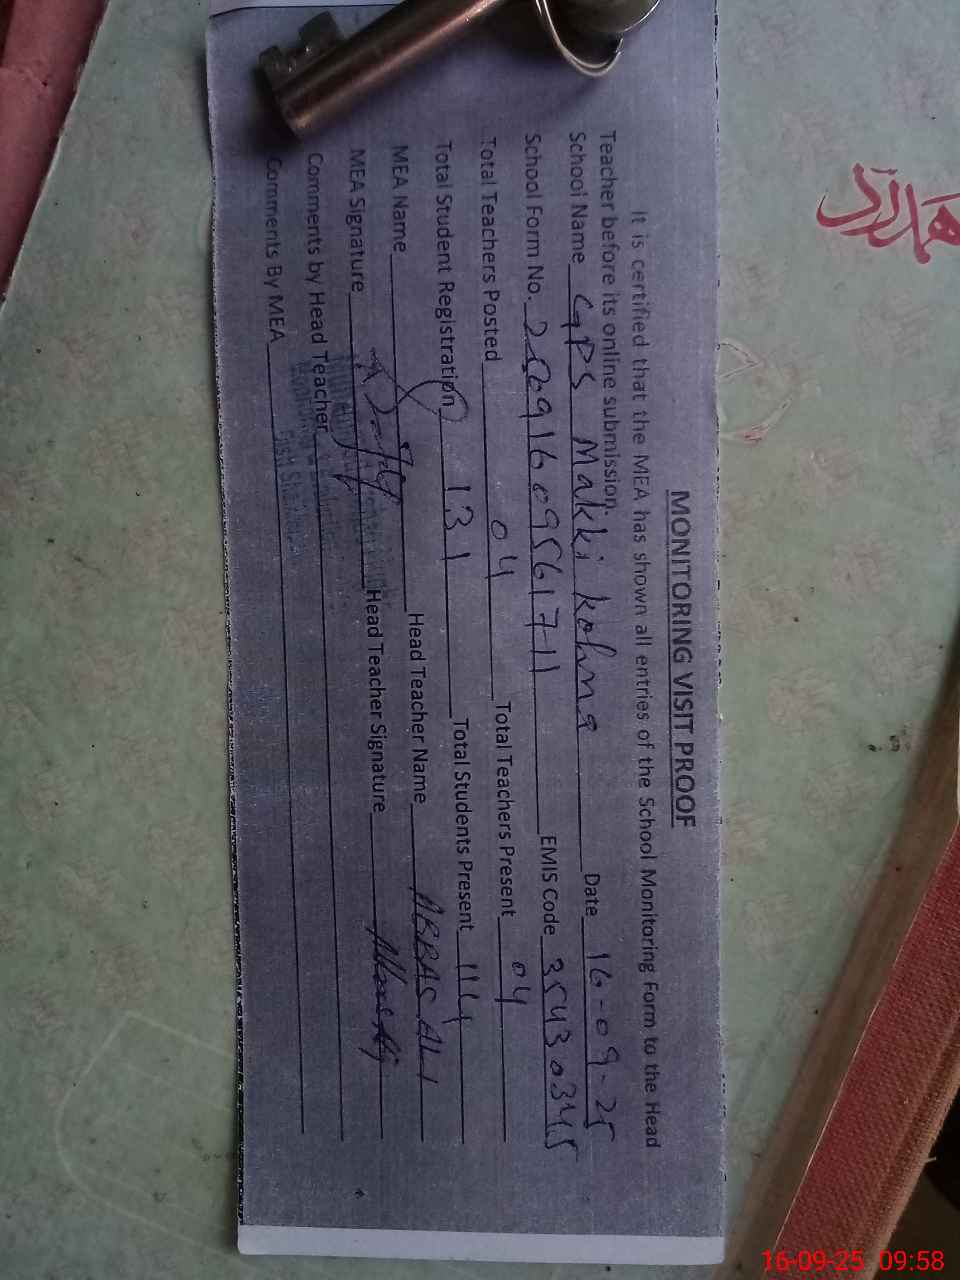 MONITORING VISIT PROOF
It is certified that the MEA has shown all entries of the School Monitoring Form to the Head
Teacher before its online submission.
School Name GPS Makki kohna Date 16-09-25
School Form No. EMIS Code 35430345
Total Teachers Posted 04 Total Teachers Present 04
Total Student Registration 131 Total Students Present 114
MEA Name Head Teacher Name ABBAS ALI
MEA Signature Head Teacher Signature
Comments by Head Teacher
Comments By MEA
ھمدرد
16-09-25 09:58